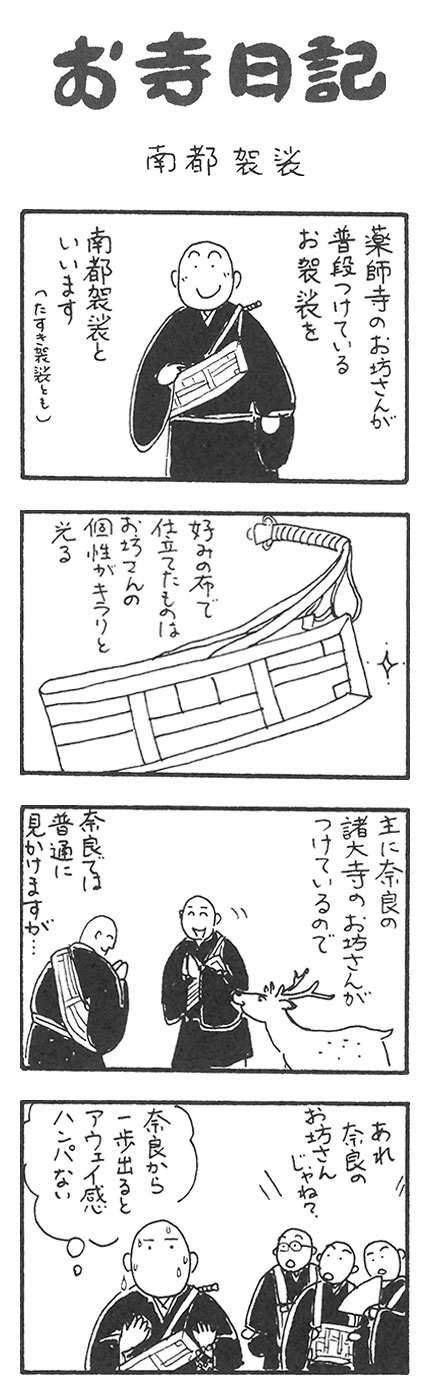 お寺日記
南都袈裟
薬師寺のお坊さんが
普段つけている
お袈裟を
南都袈裟と
いいます
(たすき袈裟とも)
好みの布で
仕立てたものは
お坊さんの
個性がキラリと
光る
主に奈良の
諸大寺のお坊さんが
つけているので
奈良では
普通に
見かけますが…
あれ
奈良の
お坊さん
じゃね?
奈良から
一歩出ると
アウェイ感
ハンパない